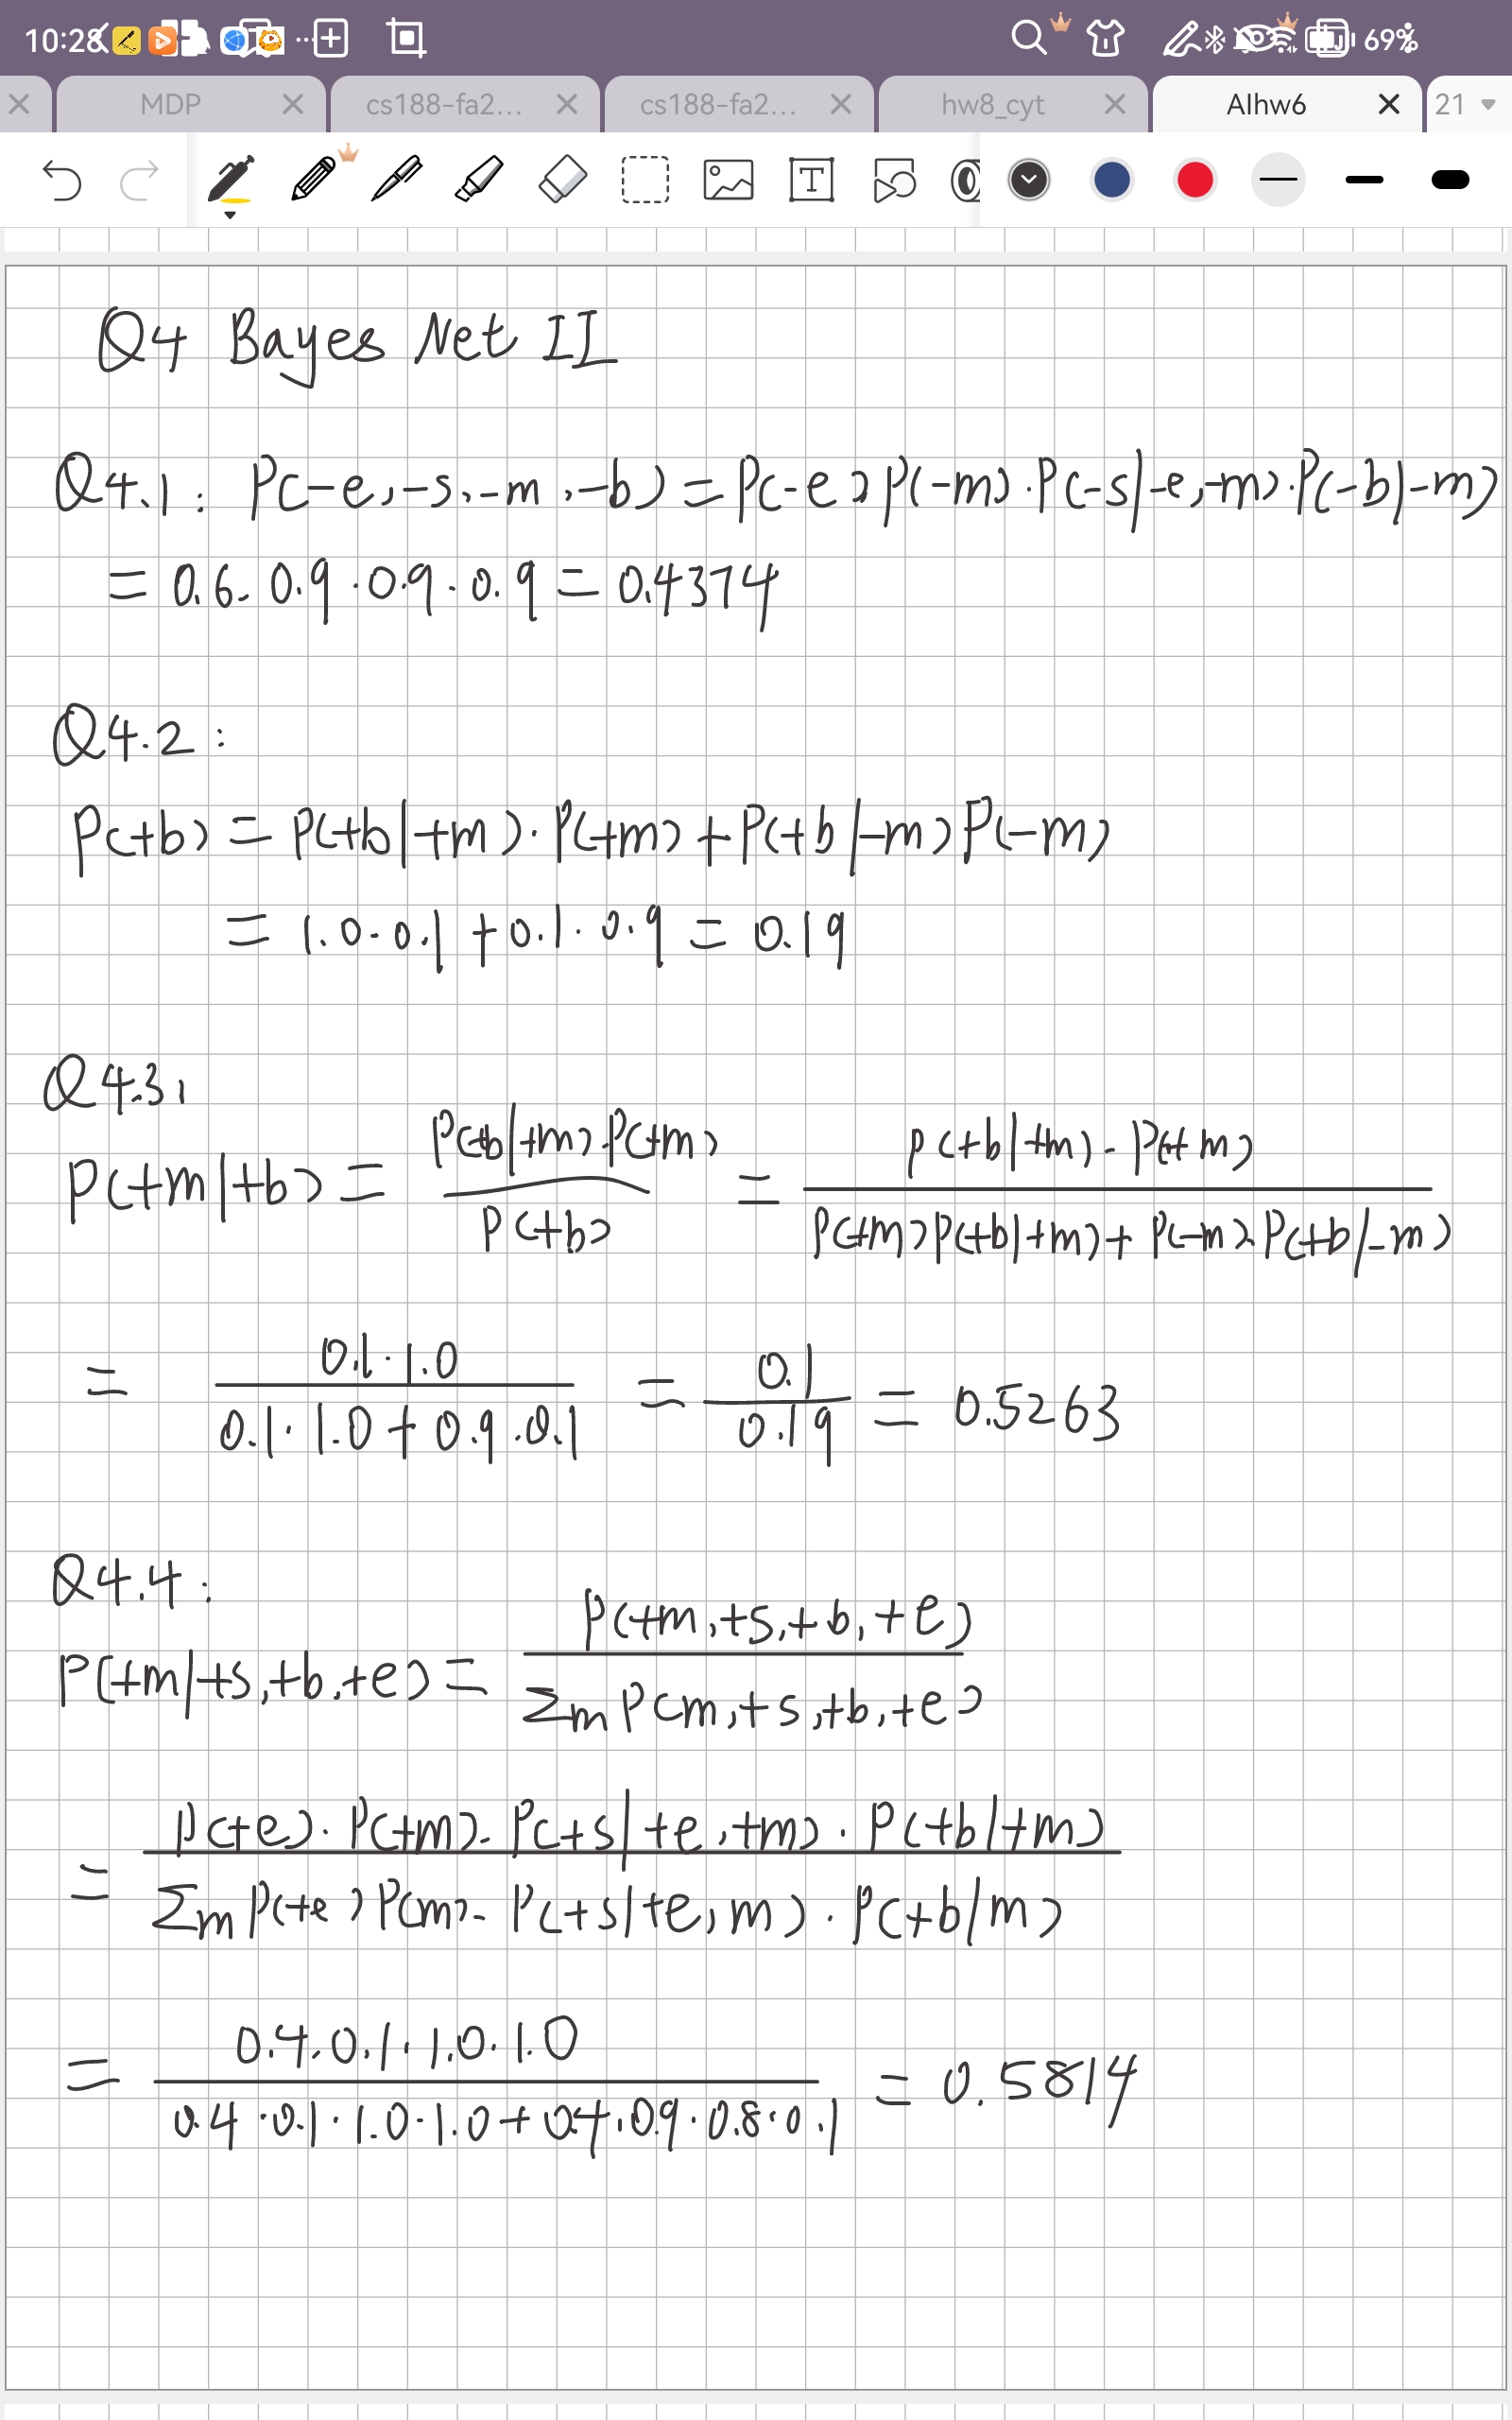 10:28 69%
MDP cs188-fa2... cs188-fa2... hw8_cyt AIhw6 21
Q4 Bayes Net II
Q4.1: P(-e,-s,-m,-b) = P(-e)P(-m)·P(-s|-e,-m)·P(-b|-m)
= 0.6·0.9·0.9·0.9 = 0.4374
Q4.2:
P(+b) = P(+b|+m)·P(+m)+P(+b|-m)P(-m)
= 1.0·0.1+0.1·0.9 = 0.19
Q4.3:
P(+m|+b) = P(+b|+m)·P(+m) / P(+b) = P(+b|+m)·P(+m) / P(+m)P(+b|+m)+P(-m)·P(+b|-m)
= 0.1·1.0 / 0.1·1.0+0.9·0.1 = 0.1 / 0.19 = 0.5263
Q4.4:
P(+m|+s,+b,+e) = P(+m,+s,+b,+e) / Σm P(m,+s,+b,+e)
= P(+e)·P(+m)·P(+s|+e,+m)·P(+b|+m) / Σm P(+e)P(m)·P(+s|+e,m)·P(+b|m)
= 0.4·0.1·1.0·1.0 / 0.4·0.1·1.0·1.0+0.4·0.9·0.8·0.1 = 0.5814